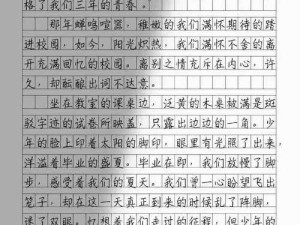 格了我们三年的青春。
那年蝉鸣喧嚣，稚嫩的我们满怀期待的踏
进校园，如今，阳光炽热，我们满怀不舍的离
开充满回忆的校园。离别之情充斥在内心，许
久，却酝酿出词不达意。
坐在教室的课桌边，泛黄的木桌被满是斑
驳字迹的试卷所映盖，只露出边边的一角。少
年的脸上印着太阳的脚印，眼里有光照了出来，
洋溢着毕业的盛夏。毕业在即，我们放慢了脚
步，感受着我们的夏天。我们曾一心盼望飞出
笼子，却在这一天真正到来的时候乱了阵脚，
迷了双眼。忆想着我们走过的征程，但少年的